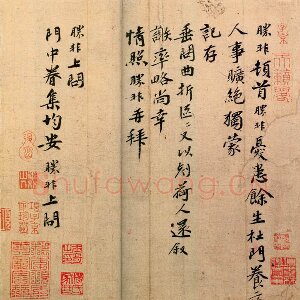 勝非頓首勝非憂患餘生杜門養
人事曠絕獨蒙
記存
垂問曲折區々又以刻荷人還敘
謝率略尚幸
情照勝非再拜
勝非上問
門中眷集均安 勝非上問